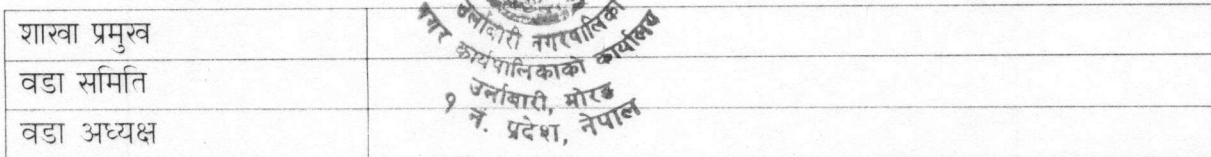 शाखा प्रमुख
वडा समिति
वडा अध्यक्ष
उर्लाबारी नगरपालिका
नगर कार्यपालिकाको कार्यालय
उर्लाबारी, मोरङ
१ नं. प्रदेश, नेपाल